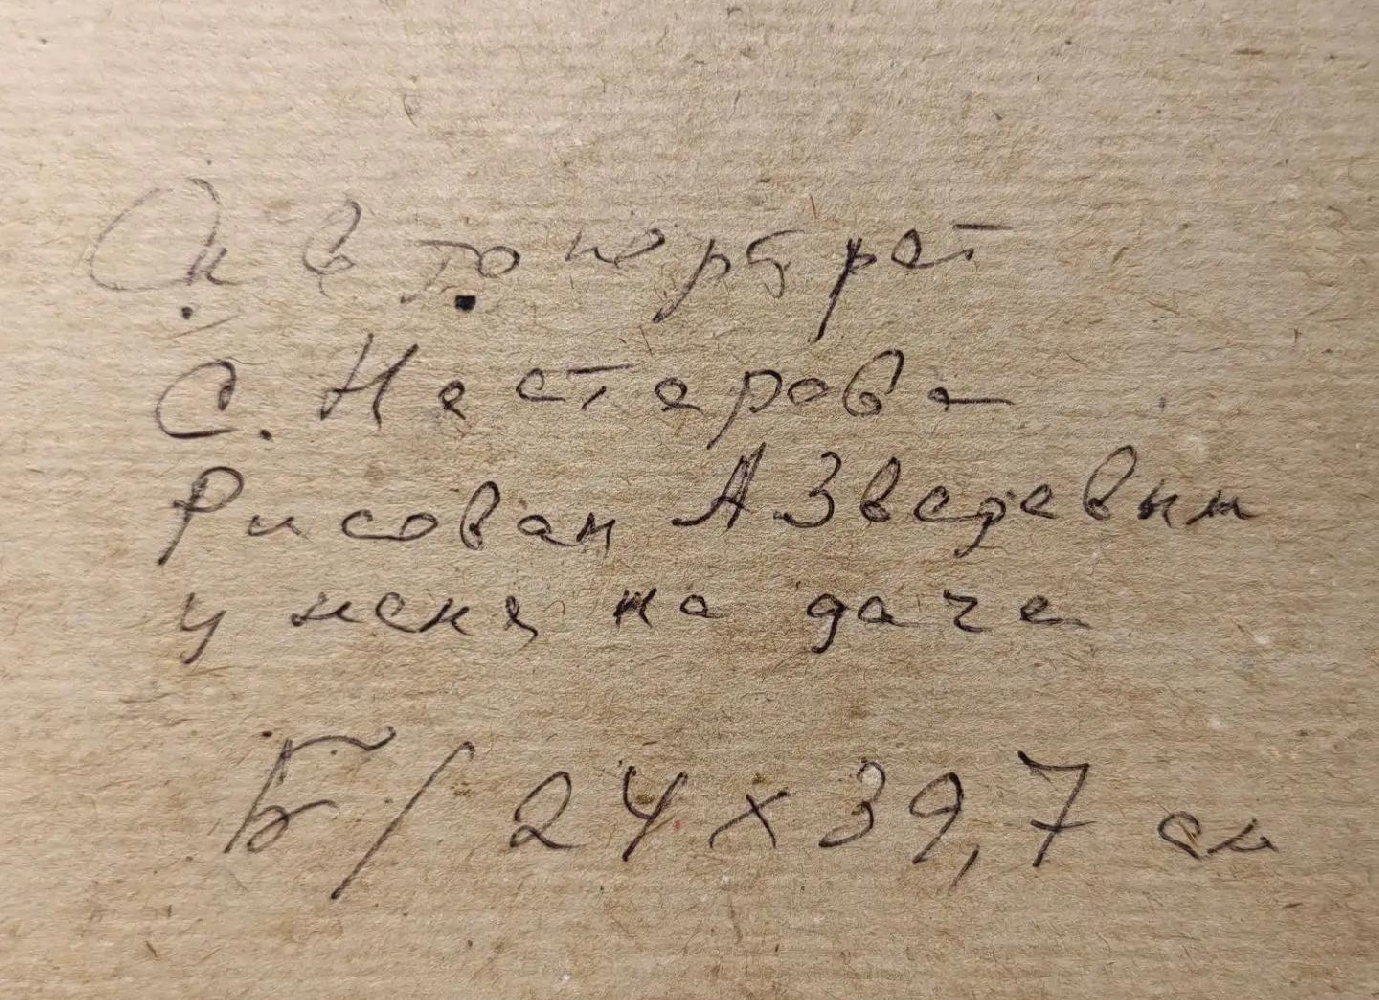 Автопортрет
С. Нестерова
Рисован А Зверевым
у меня на даче
Б/ 24 х 39,7 см